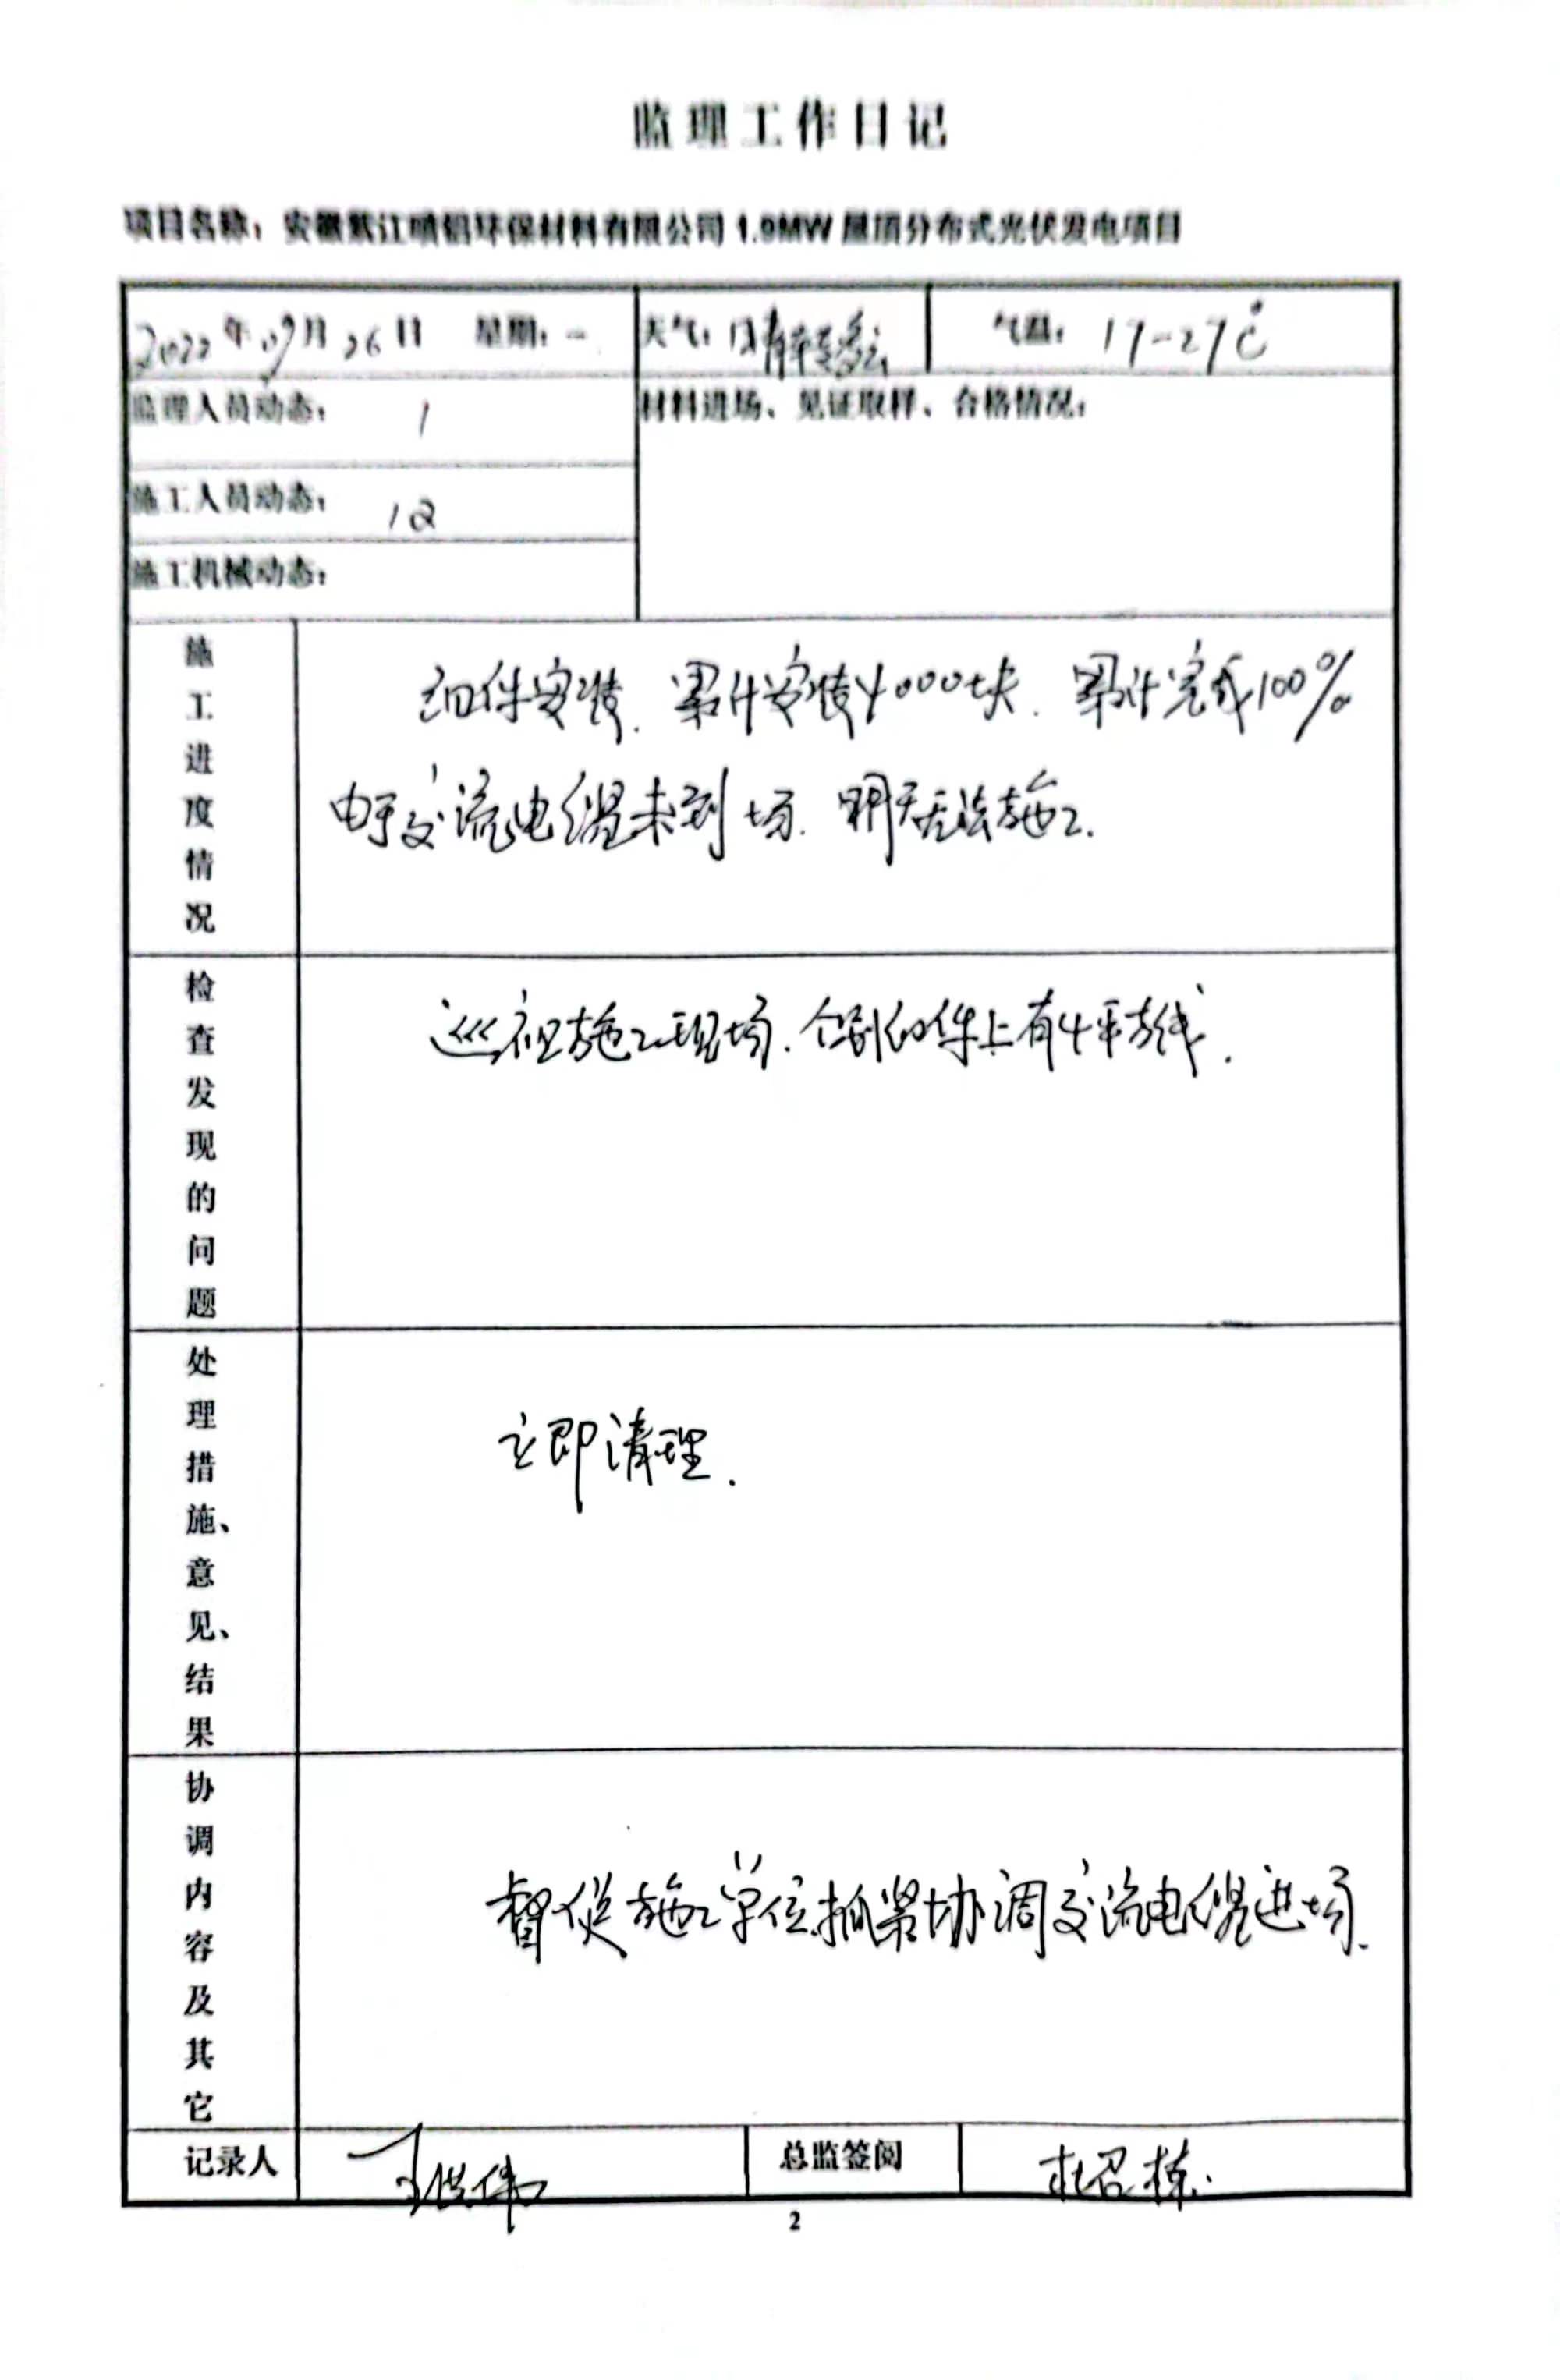 监理工作日记
项目名称：安徽紫江喷铝环保材料有限公司1.0MW屋顶分布式光伏发电项目
2022年09月26日 星期：一 天气：晴转多云 气温：17-27℃
监理人员动态： 1 材料进场、见证取样、合格情况：
施工人员动态： 12
施工机械动态：
施工进度情况
组件安装．累计安装4000块．累计完成100%
由于交流电缆未到场．明天无法施工．
检查发现的问题
巡视施工现场．个别组件上有
处理措施、意见、结果
立即清理．
协调内容及其它
督促施工单位抓紧协调交流电缆进场．
记录人 总监签阅 杜召栋
2